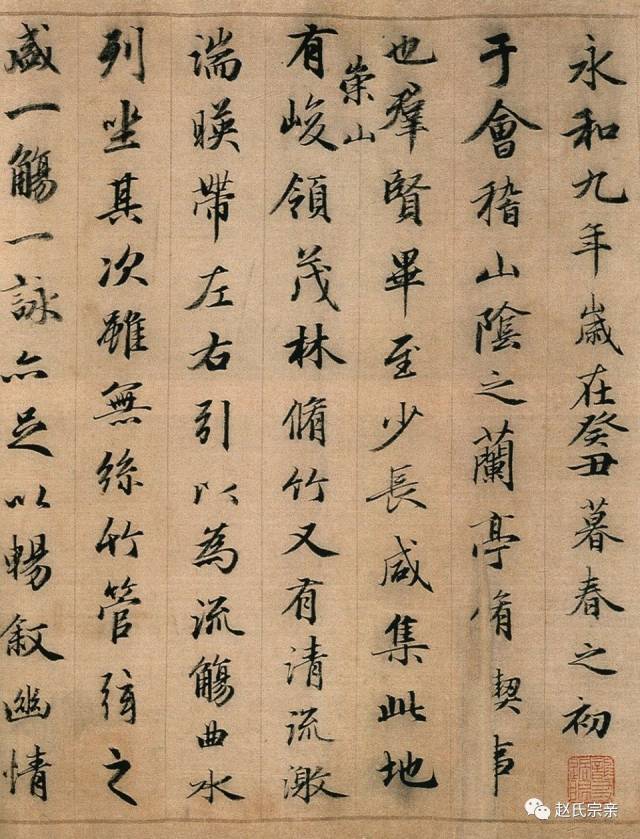 永和九年歲在癸丑暮春之初
于會稽山陰之蘭亭脩禊事
也羣賢畢至少長咸集此地
崇山
有峻領茂林脩竹又有清流激
湍暎帶左右引以為流觴曲水
列坐其次雖無絲竹管弦之
盛一觴一詠亦足以暢敘幽情
赵氏宗亲